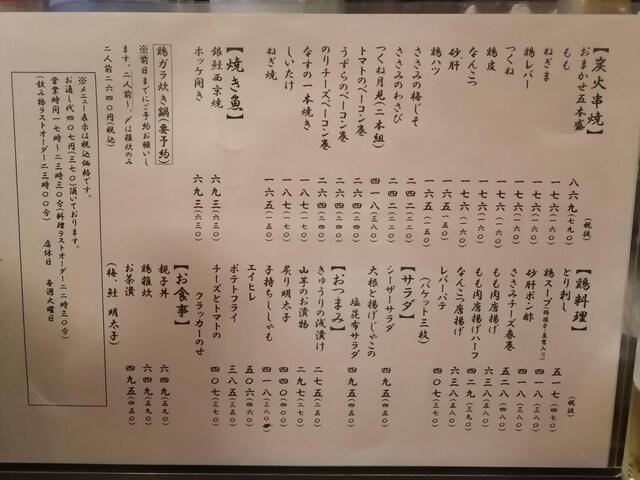 【炭火串焼】
(税抜)
おまかせ五本盛 八六九(七九〇)
もも 一七六(一六〇)
ねぎま 一七六(一六〇)
鶏レバー 一七六(一六〇)
つくね 一七六(一六〇)
鶏皮 一七六(一六〇)
なんこつ
砂肝 一六五(一五〇)
鶏ハツ 一六五(一五〇)
ささみの梅じそ 二四二(二二〇)
ささみのわさび 二四二(二二〇)
つくね月見(二本組) 四一八(三八〇)
トマトのベーコン巻 二六四(二四〇)
うずらのベーコン巻 二六四(二四〇)
のりチーズベーコン巻 二六四(二四〇)
なすの一本焼き 一八七(一七〇)
しいたけ 一八七(一七〇)
ねぎ焼 一六五(一五〇)
【焼き魚】
銀鮭西京焼 六九三(六三〇)
ホッケ開き 六九三(六三〇)
鶏ガラ炊き鍋(要予約)
※前日までにご予約お願いし
ます。二人前〜、〆は雑炊のみ
二人前二六四〇円(税込)
【鶏料理】
(税抜)
とり刺し 五一七(四七〇)
鶏スープ(鶏団子・豆腐入り) 四一八(三八〇)
砂肝ポン酢 四一八(三八〇)
ささみチーズ春巻 五二八(四八〇)
もも肉唐揚げ 六三八(五八〇)
もも肉唐揚げハーフ 四二九(三九〇)
なんこつ唐揚げ 六三八(五八〇)
レバーパテ 四〇七(三七〇)
(バケット三枚)
【サラダ】
シーザーサラダ 四九五(四五〇)
大根と揚げじゃこの
塩昆布サラダ 四九五(四五〇)
【おつまみ】
きゅうりの浅漬け 二七五(二五〇)
山芋のお漬物 二九七(二七〇)
炙り明太子 四四〇(四〇〇)
子持ちししゃも 四一八(三八〇)
エイヒレ 五〇六(四六〇)
ポテトフライ 三八五(三五〇)
チーズとトマトの
クラッカーのせ 四〇七(三七〇)
【お食事】
親子丼 六四九(五九〇)
鶏雑炊 六四九(五九〇)
お茶漬 四九五(四五〇)
(梅、鮭、明太子)
※メニュー表示は税込価格です。
お通し代四〇七円(三七〇)頂いております。
営業時間一七時〜二三時三〇分(料理ラストオーダー二二時三〇分)
(飲み物ラストオーダー二三時〇〇分) 店休日 毎週火曜日